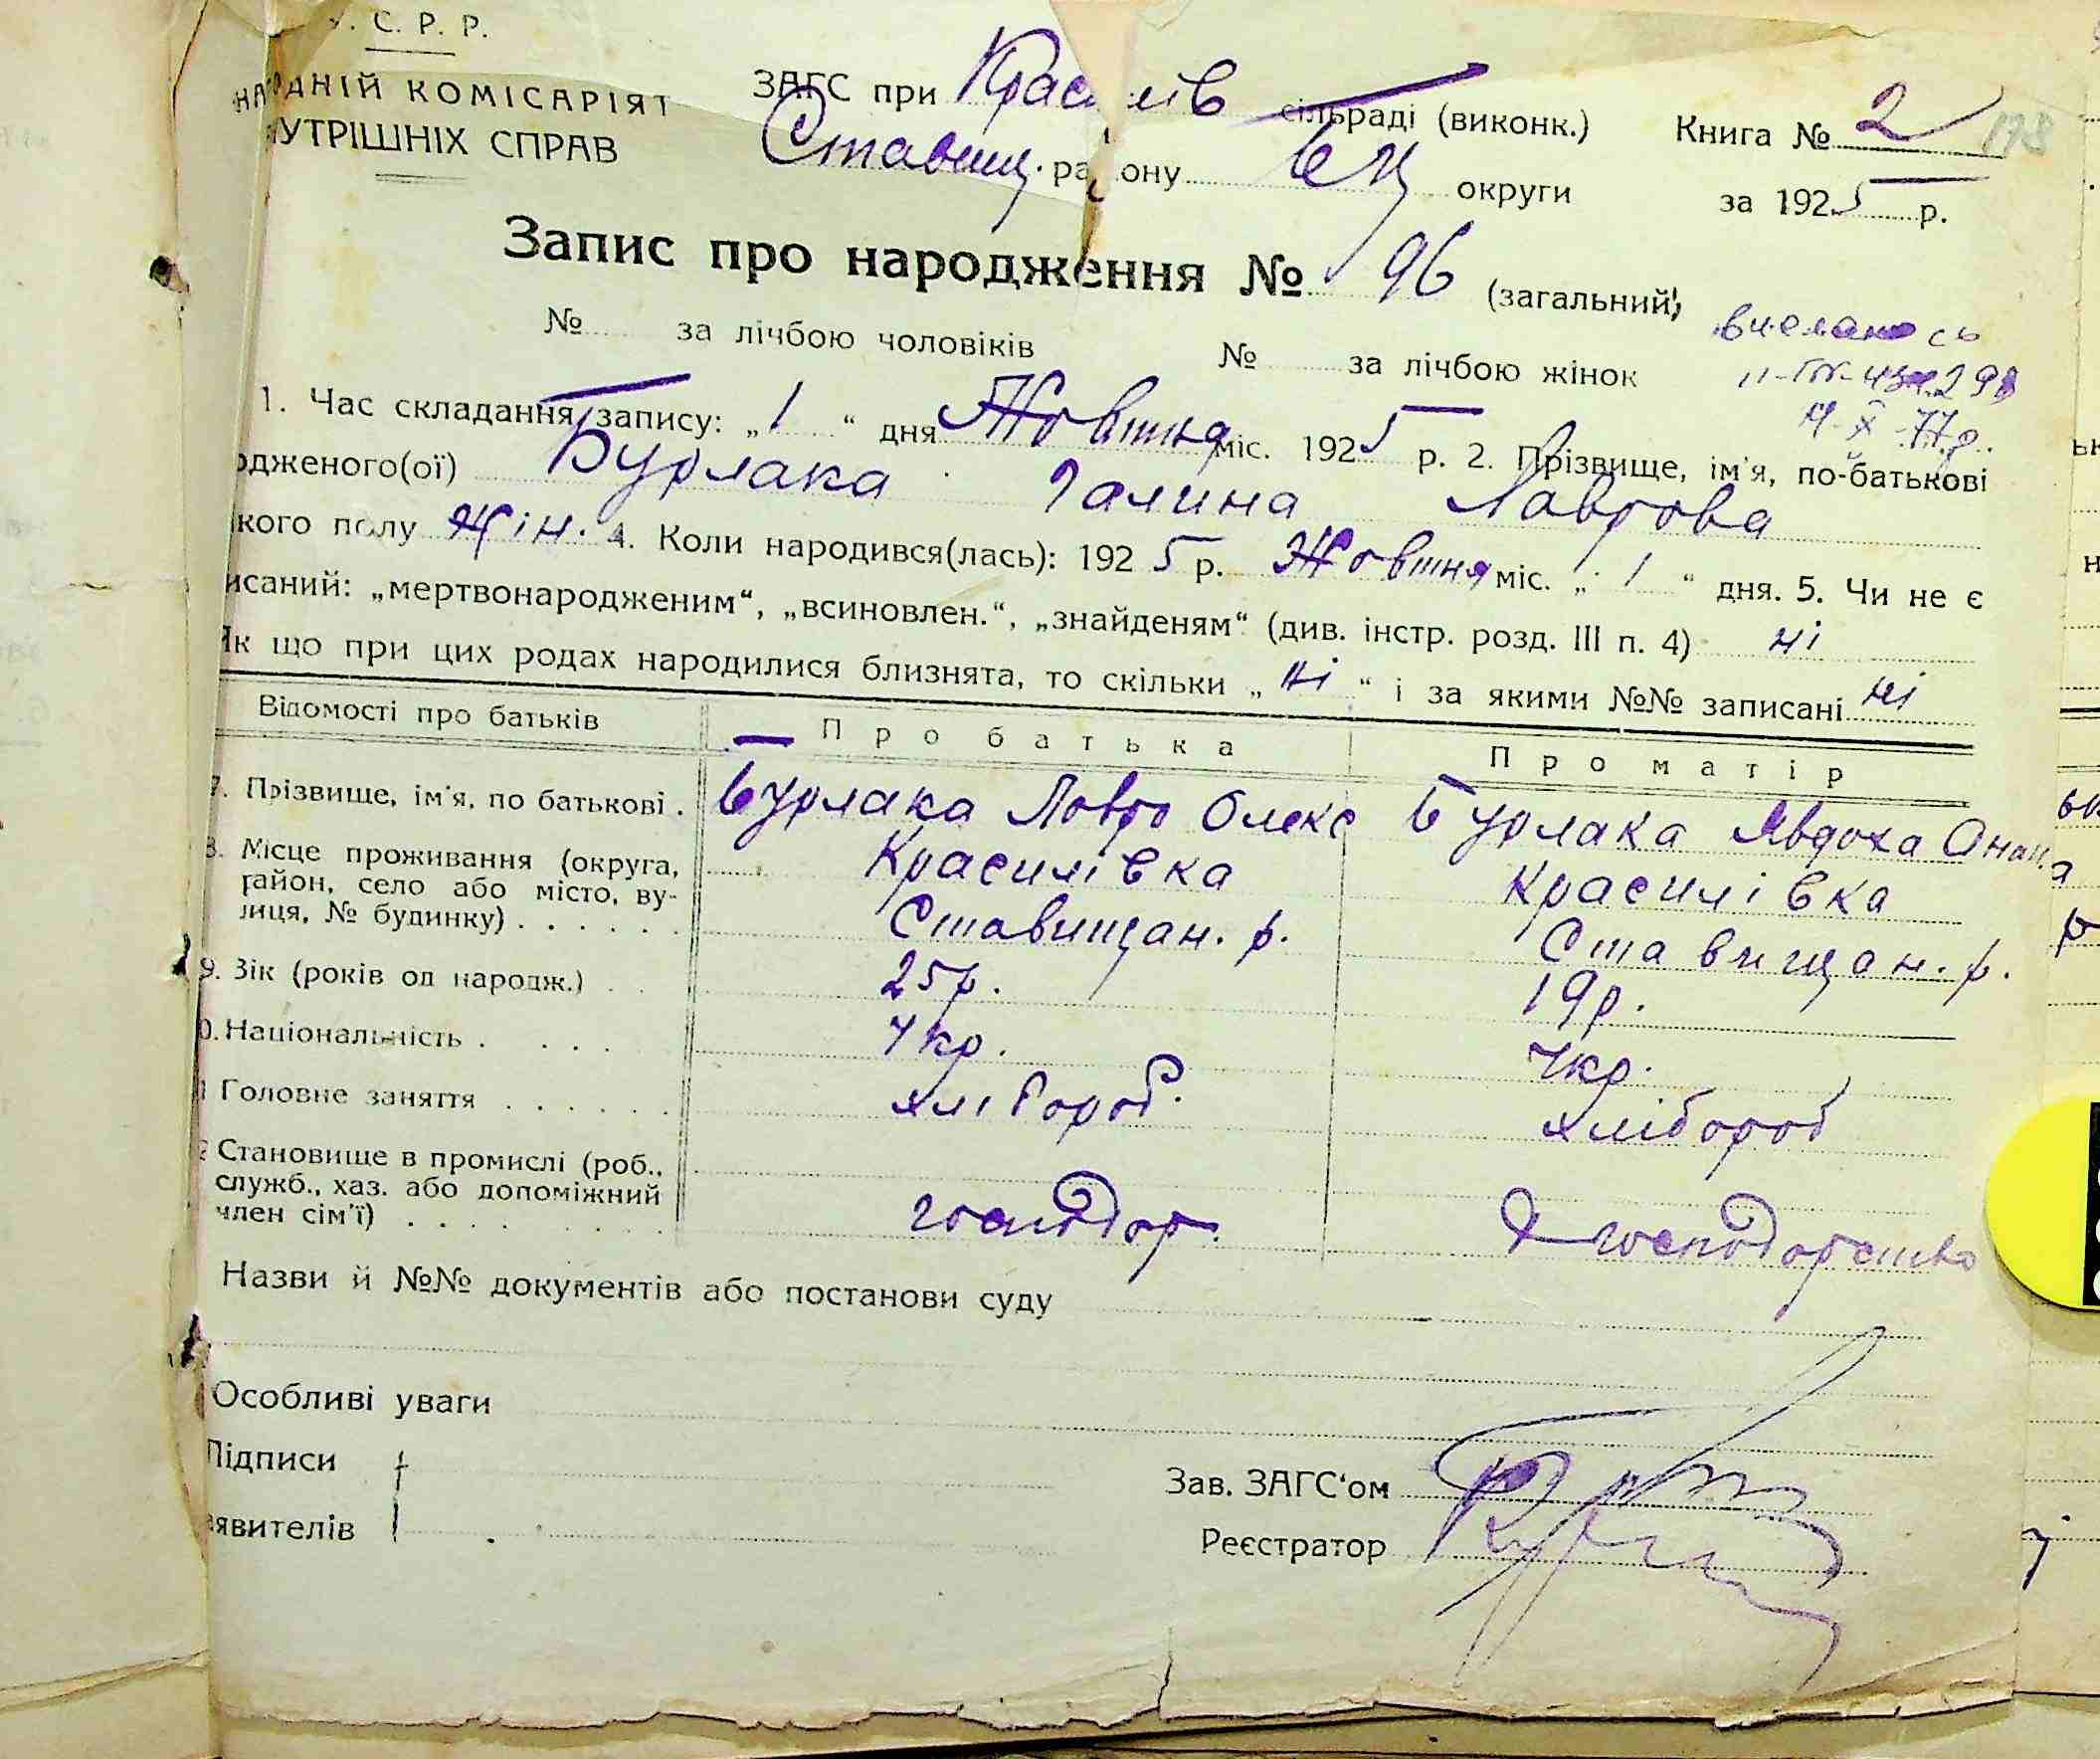 У. С. Р. Р.
НАРОДНІЙ КОМІСАРІЯТ
ВНУТРІШНІХ СПРАВ
ЗАГС при Красилів сільраді (виконк.)
Ставищ. району БЦ округи
Книга № 2 178
за 1925 р.
Запис про народження № 96 (загальний)
№ за лічбою чоловіків № за лічбою жінок
11-X-77р.
1. Час складання запису: „1“ дня Жовтня міс. 1925 р. 2. Прізвище, ім'я, по-батькові
одженого(ої) Бурлака Галина Лаврова
кого полу жін. 4. Коли народився(лась): 1925 р. Жовтня міс. „1“ дня. 5. Чи не є
исаний: „мертвонародженим“, „всиновлен.“, „знайденям“ (див. інстр. розд. III п. 4) ні
Як що при цих родах народилися близнята, то скільки „ні“ і за якими №№ записані ні
Відомості про батьків Про батька Про матір
7. Прізвище, ім'я, по батькові . Бурлака Лавро Олекс Бурлака Явдоха Онан
8. Місце проживання (округа, район, село або місто, вулиця, № будинку) . . . . . .
Красилівка Красилівка
Ставищан. р. Ставищан. р.
9. Вік (років од народж.) . . 25р. 19р.
0. Національність . . . . Укр. Укр.
1 Головне заняття . . . . . . хлібороб. хлібороб
2 Становище в промислі (роб.,
служб., хаз. або допоміжний
член сім'ї) . . . . господар. господарство
Назви й №№ документів або постанови суду
Особливі уваги
Підписи
явителів
Зав. ЗАГС'ом
Реєстратор